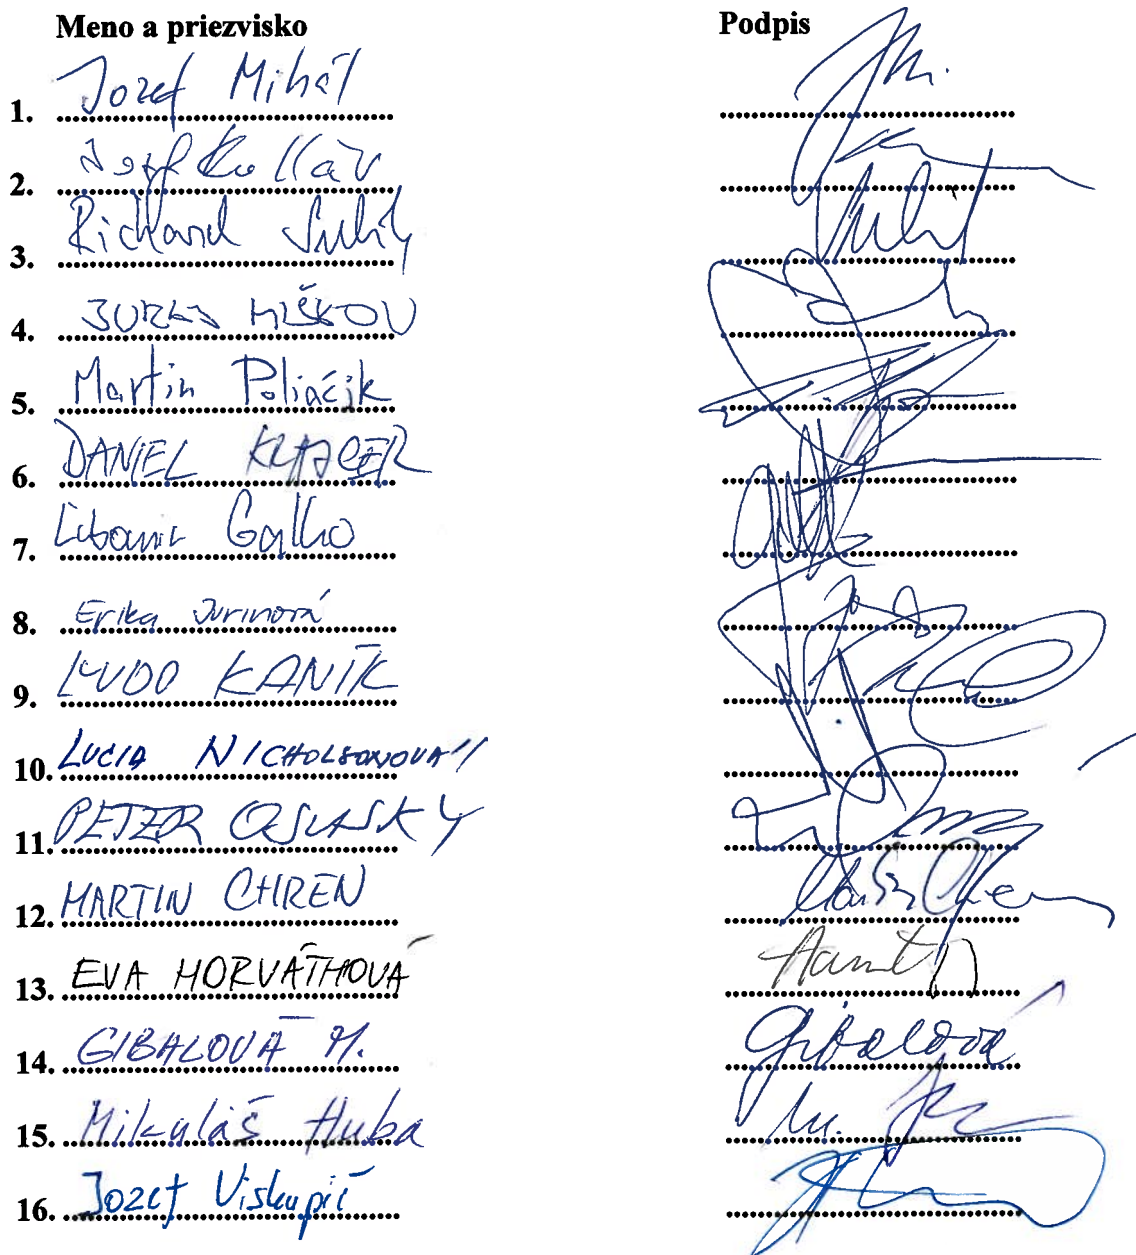 Meno a priezvisko Podpis
1. Jozef Mihál
2. Jozef Kollár
3. Richard Sulík
4. JURAJ MIŠKOV
5. Martin Poliačik
6. DANIEL KRAJCER
7. Ľubomír Galko
8. Erika Jurinová
9. ĽUDO KANÍK
10. LUCIA NICHOLSONOVÁ
11. PETER OSUSKÝ
12. MARTIN CHREN
13. EVA HORVÁTHOVÁ
14. GIBALOVÁ M. Gibalová
15. Mikuláš Huba
16. Jozef Viskupič